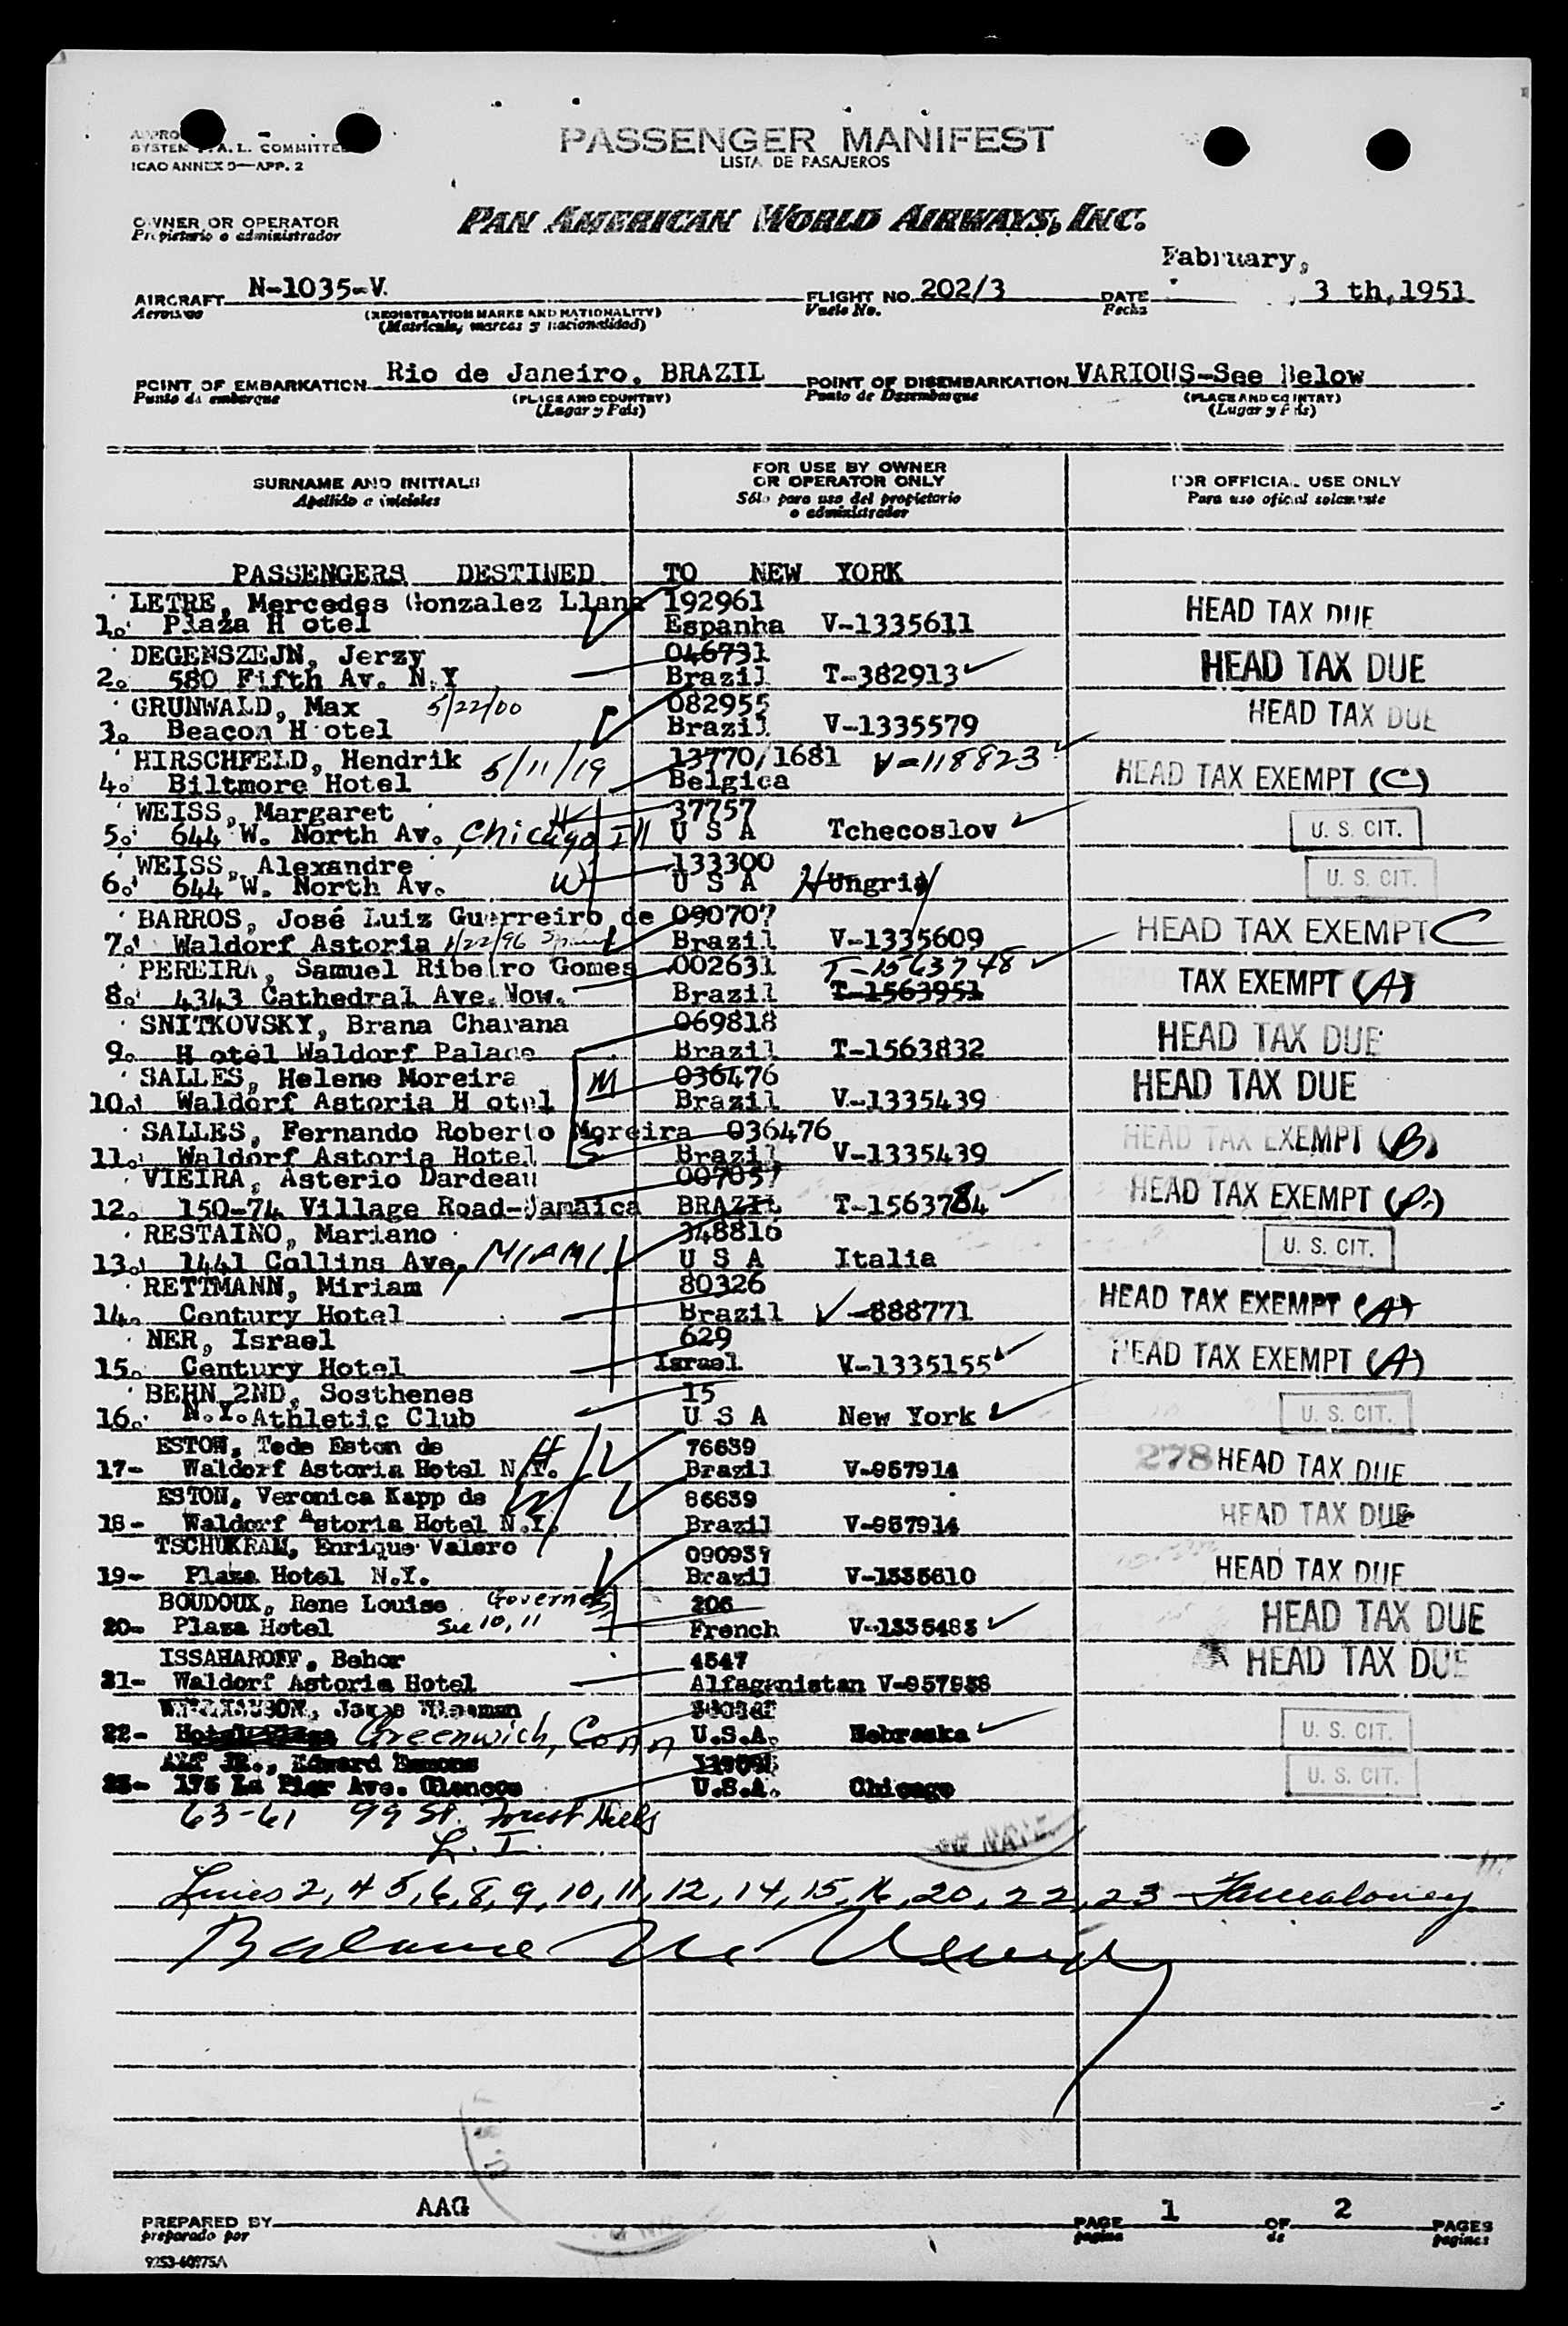 PASSENGER MANIFEST
LISTA DE PASAJEROS
SYSTEM COMMITTEE
ICAO ANNEX 9—APP. 2
OWNER OR OPERATOR
Propietario o administrador
PAN AMERICAN WORLD AIRWAYS, INC.
Fabruary,
AIRCRAFT N-1035-V. FLIGHT NO. 202/3 DATE 3 th, 1951
Aeronave (REGISTRATION MARKS AND NATIONALITY) Vuelo No. Fecha
(Matrícula, marcas y nacionalidad)
POINT OF EMBARKATION Rio de Janeiro, BRAZIL POINT OF DISEMBARKATION VARIOUS-See Below
Punto de embarque (PLACE AND COUNTRY) Punto de Desembarque (PLACE AND COUNTRY)
(Lugar y País) (Lugar y País)
SURNAME AND INITIALS FOR USE BY OWNER OR OPERATOR ONLY FOR OFFICIAL USE ONLY
Apellido e iniciales Sólo para uso del propietario o administrador Para uso oficial solamente
PASSENGERS DESTINED TO NEW YORK
LETRE, Mercedes Gonzalez Llana 192961 HEAD TAX DUE
1. Plaza H otel Espanha V-1335611
DEGENSZEJN, Jerzy 046731 HEAD TAX DUE
2. 580 Fifth Av. N.Y Brazil T-382913
GRUNWALD, Max 5/22/00 082955 HEAD TAX DUE
3. Beacon H otel Brazil V-1335579
HIRSCHFELD, Hendrik 5/11/19 13770/1681 V-118823 HEAD TAX EXEMPT (C)
4. Biltmore Hotel Belgica
WEISS, Margaret 37757
5. 644 W. North Av., Chicago Ill U S A Tchecoslov U. S. CIT.
WEISS, Alexandre 133300
6. 644 W. North Av. W U S A Hungria U. S. CIT.
BARROS, José Luiz Guerreiro de 090707 HEAD TAX EXEMPT C
7. Waldorf Astoria 1/22/96 Brazil V-1335609
PEREIRA, Samuel Ribeiro Gomes 002631 T-1563748 TAX EXEMPT (A)
8. 4343 Cathedral Ave. Now. Brazil T-1563951
SNITKOVSKY, Brana Charana 069818 HEAD TAX DUE
9. H otel Waldorf Palace Brazil T-1563832
SALLES, Helene Moreira M 036476 HEAD TAX DUE
10. Waldorf Astoria H otel Brazil V-1335439
SALLES, Fernando Roberto Moreira 036476 HEAD TAX EXEMPT (B)
11. Waldorf Astoria Hotel S Brazil V-1335439
VIEIRA, Asterio Dardeau 007057 HEAD TAX EXEMPT
12. 150-74 Village Road-Jamaica BRAZIL T-1563784
RESTAINO, Mariano 348816 U. S. CIT.
13. 1441 Collins Ave, MIAMI U S A Italia
RETTMANN, Miriam 80326 HEAD TAX EXEMPT (A)
14. Century Hotel Brazil V-888771
NER, Israel 629 HEAD TAX EXEMPT (A)
15. Century Hotel Israel V-1335155
BEHN 2ND, Sosthenes 15
16. N.Y. Athletic Club U S A New York U. S. CIT.
ESTON, Tede Eston de H 76639 278 HEAD TAX DUE
17- Waldorf Astoria Hotel N.Y. Brazil V-957914
ESTON, Veronica Kapp de W 86639 HEAD TAX DUE
18- Waldorf Astoria Hotel N.Y. Brazil V-957914
TSCHUKRAN, Enrique Valero 090939 HEAD TAX DUE
19- Plaza Hotel N.Y. Brazil V-1335610
BOUDOUX, Rene Louise Governess 206 HEAD TAX DUE
20- Plaza Hotel See 10, 11 French V-1335483
ISSAHAROFF, Behor 4547 HEAD TAX DUE
21- Waldorf Astoria Hotel Alfaganistan V-957938
22- Greenwich, Conn U.S.A. Nebraska U. S. CIT.
ALF JR., Edward Emmons
23- 175 La Pier Ave. Glencoe U.S.A. Chicago U. S. CIT.
63-61 99 St. Forest Hills
L. I.
Lines 2, 4 5, 6, 8, 9, 10, 11, 12, 14, 15, 16, 20, 22, 23
Balance
PREPARED BY AAG PAGE 1 OF 2 PAGES
preparado por pagina de paginas